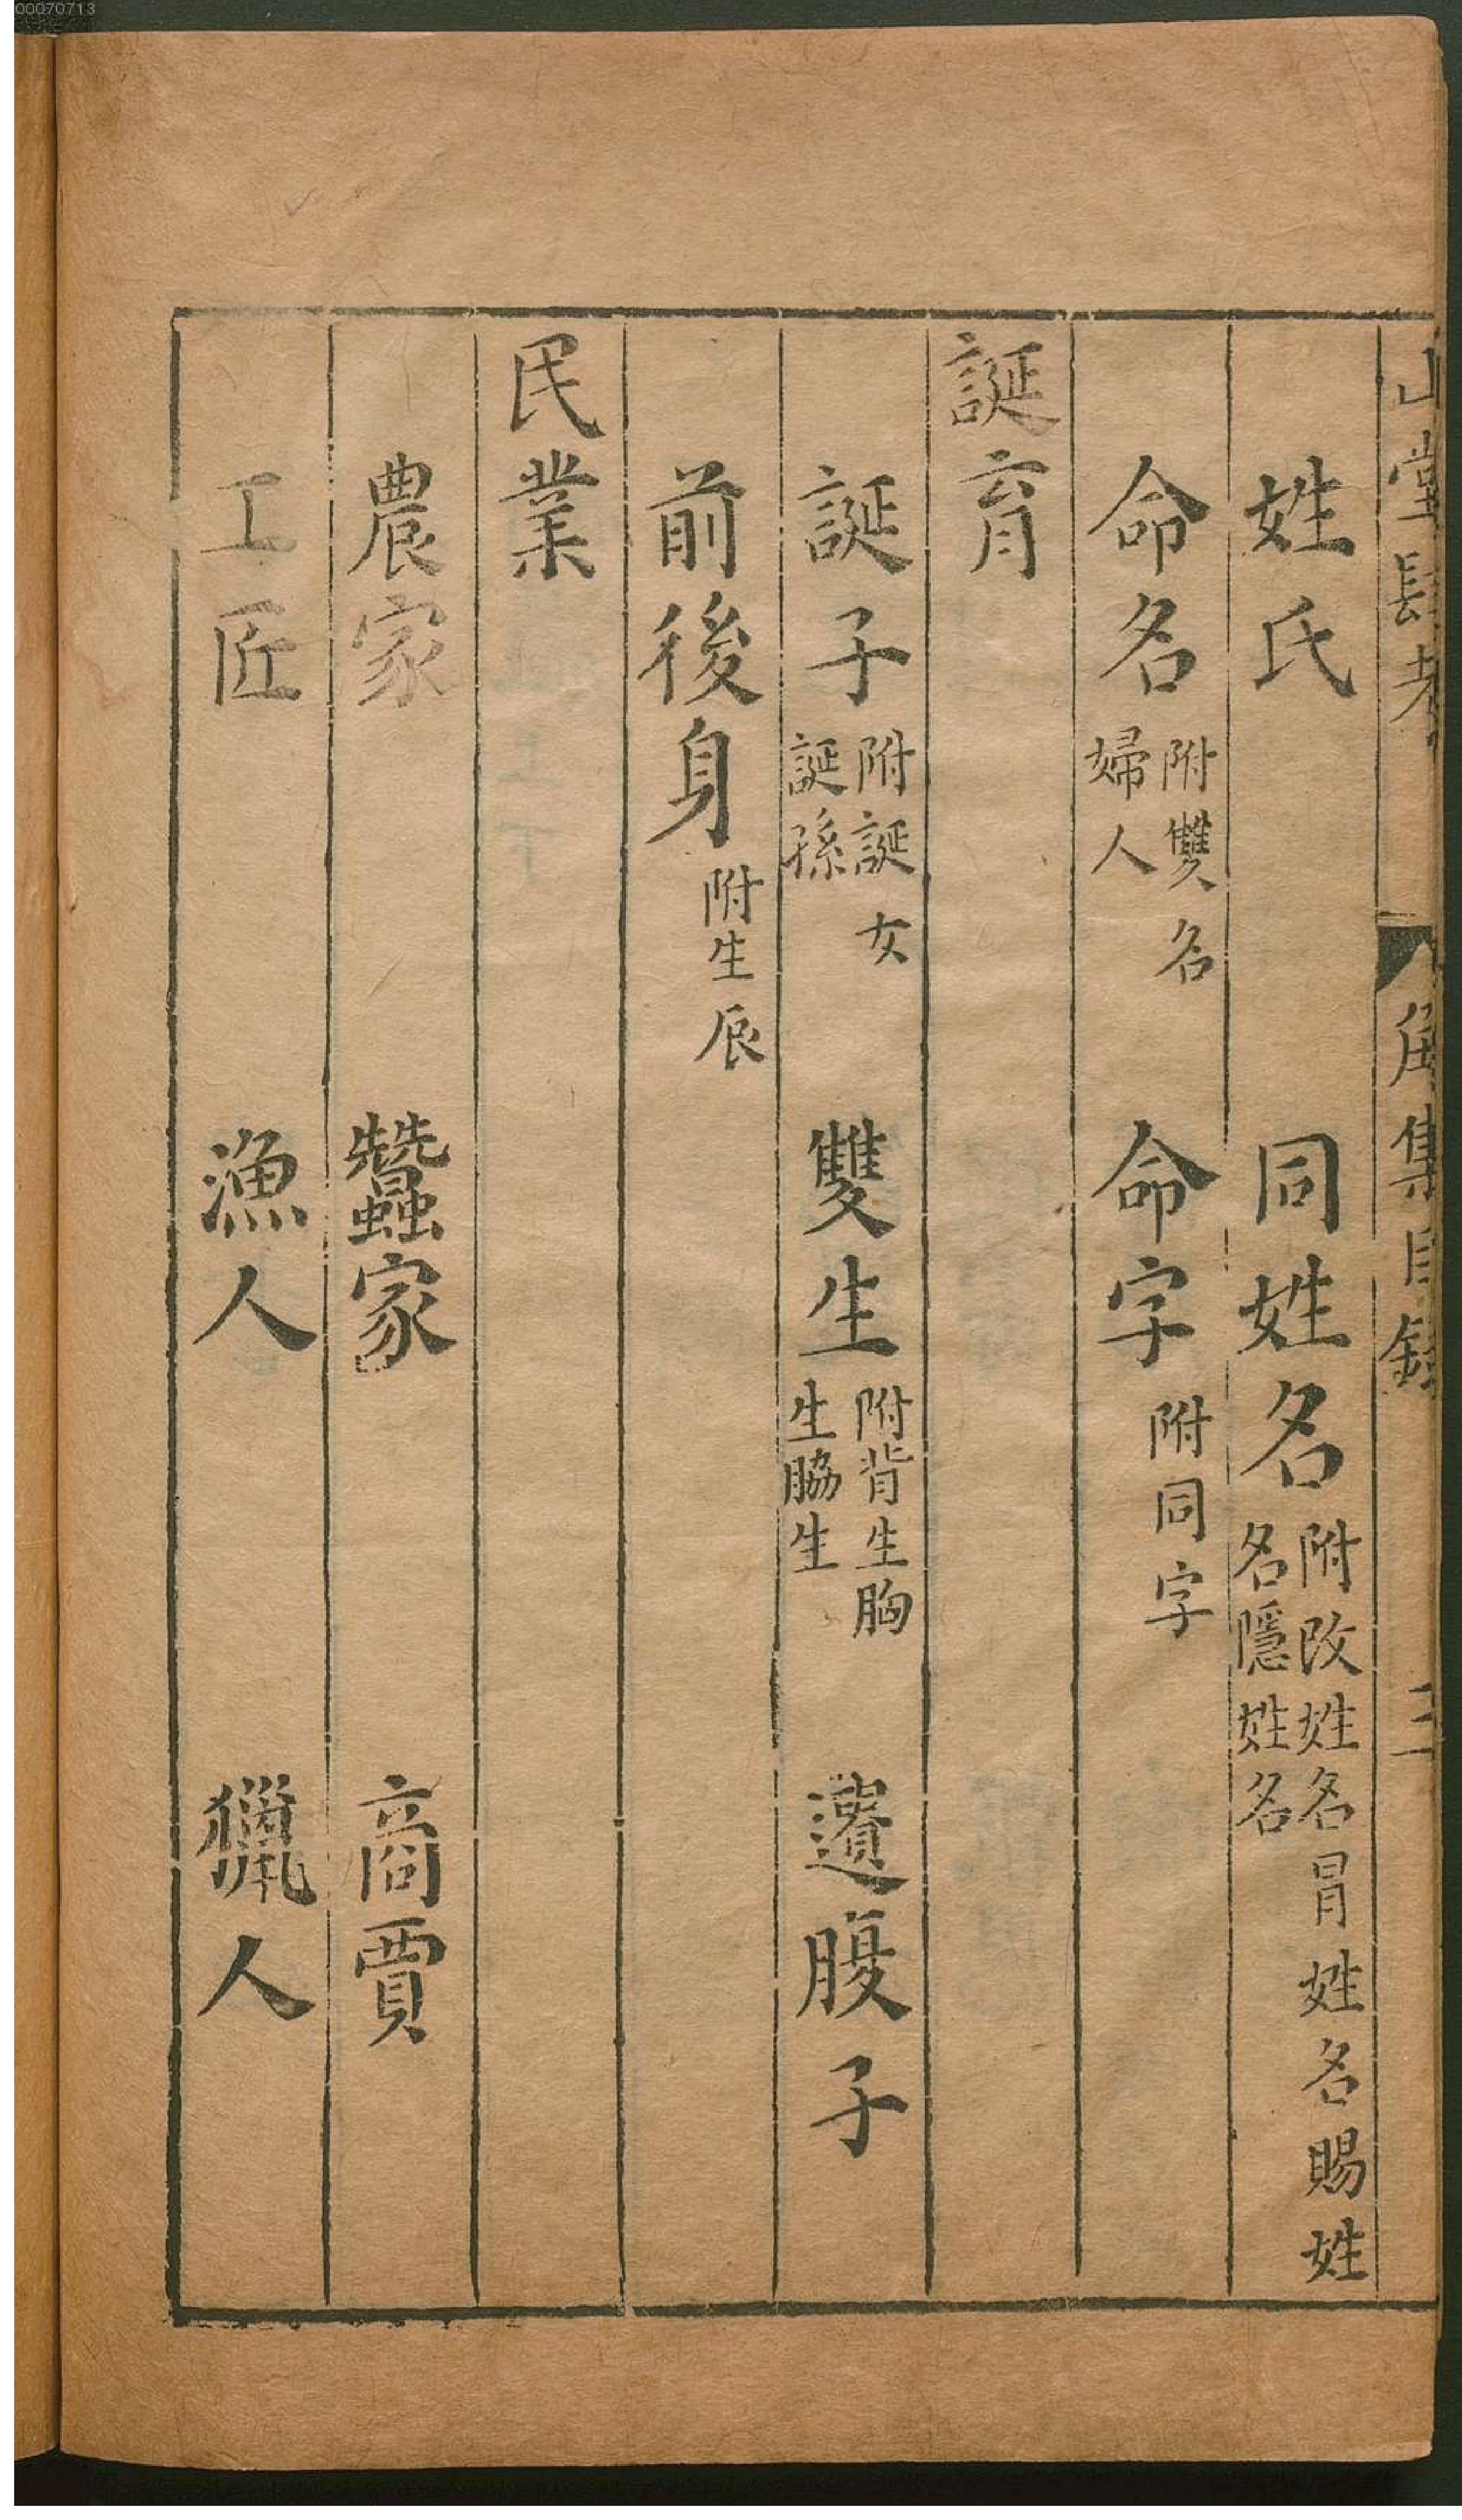 00070713
山堂肆考 角集目錄 三
姓氏 同姓名 附改姓名冒姓名賜姓
名隱姓名
命名 附雙名
婦人 命字 附同字
誕育
誕子 附誕女
誕孫 雙生 附背生胸
生脇生 遺腹子
前後身 附生辰
民業
農家 蠶家 商賈
工匠 漁人 獵人